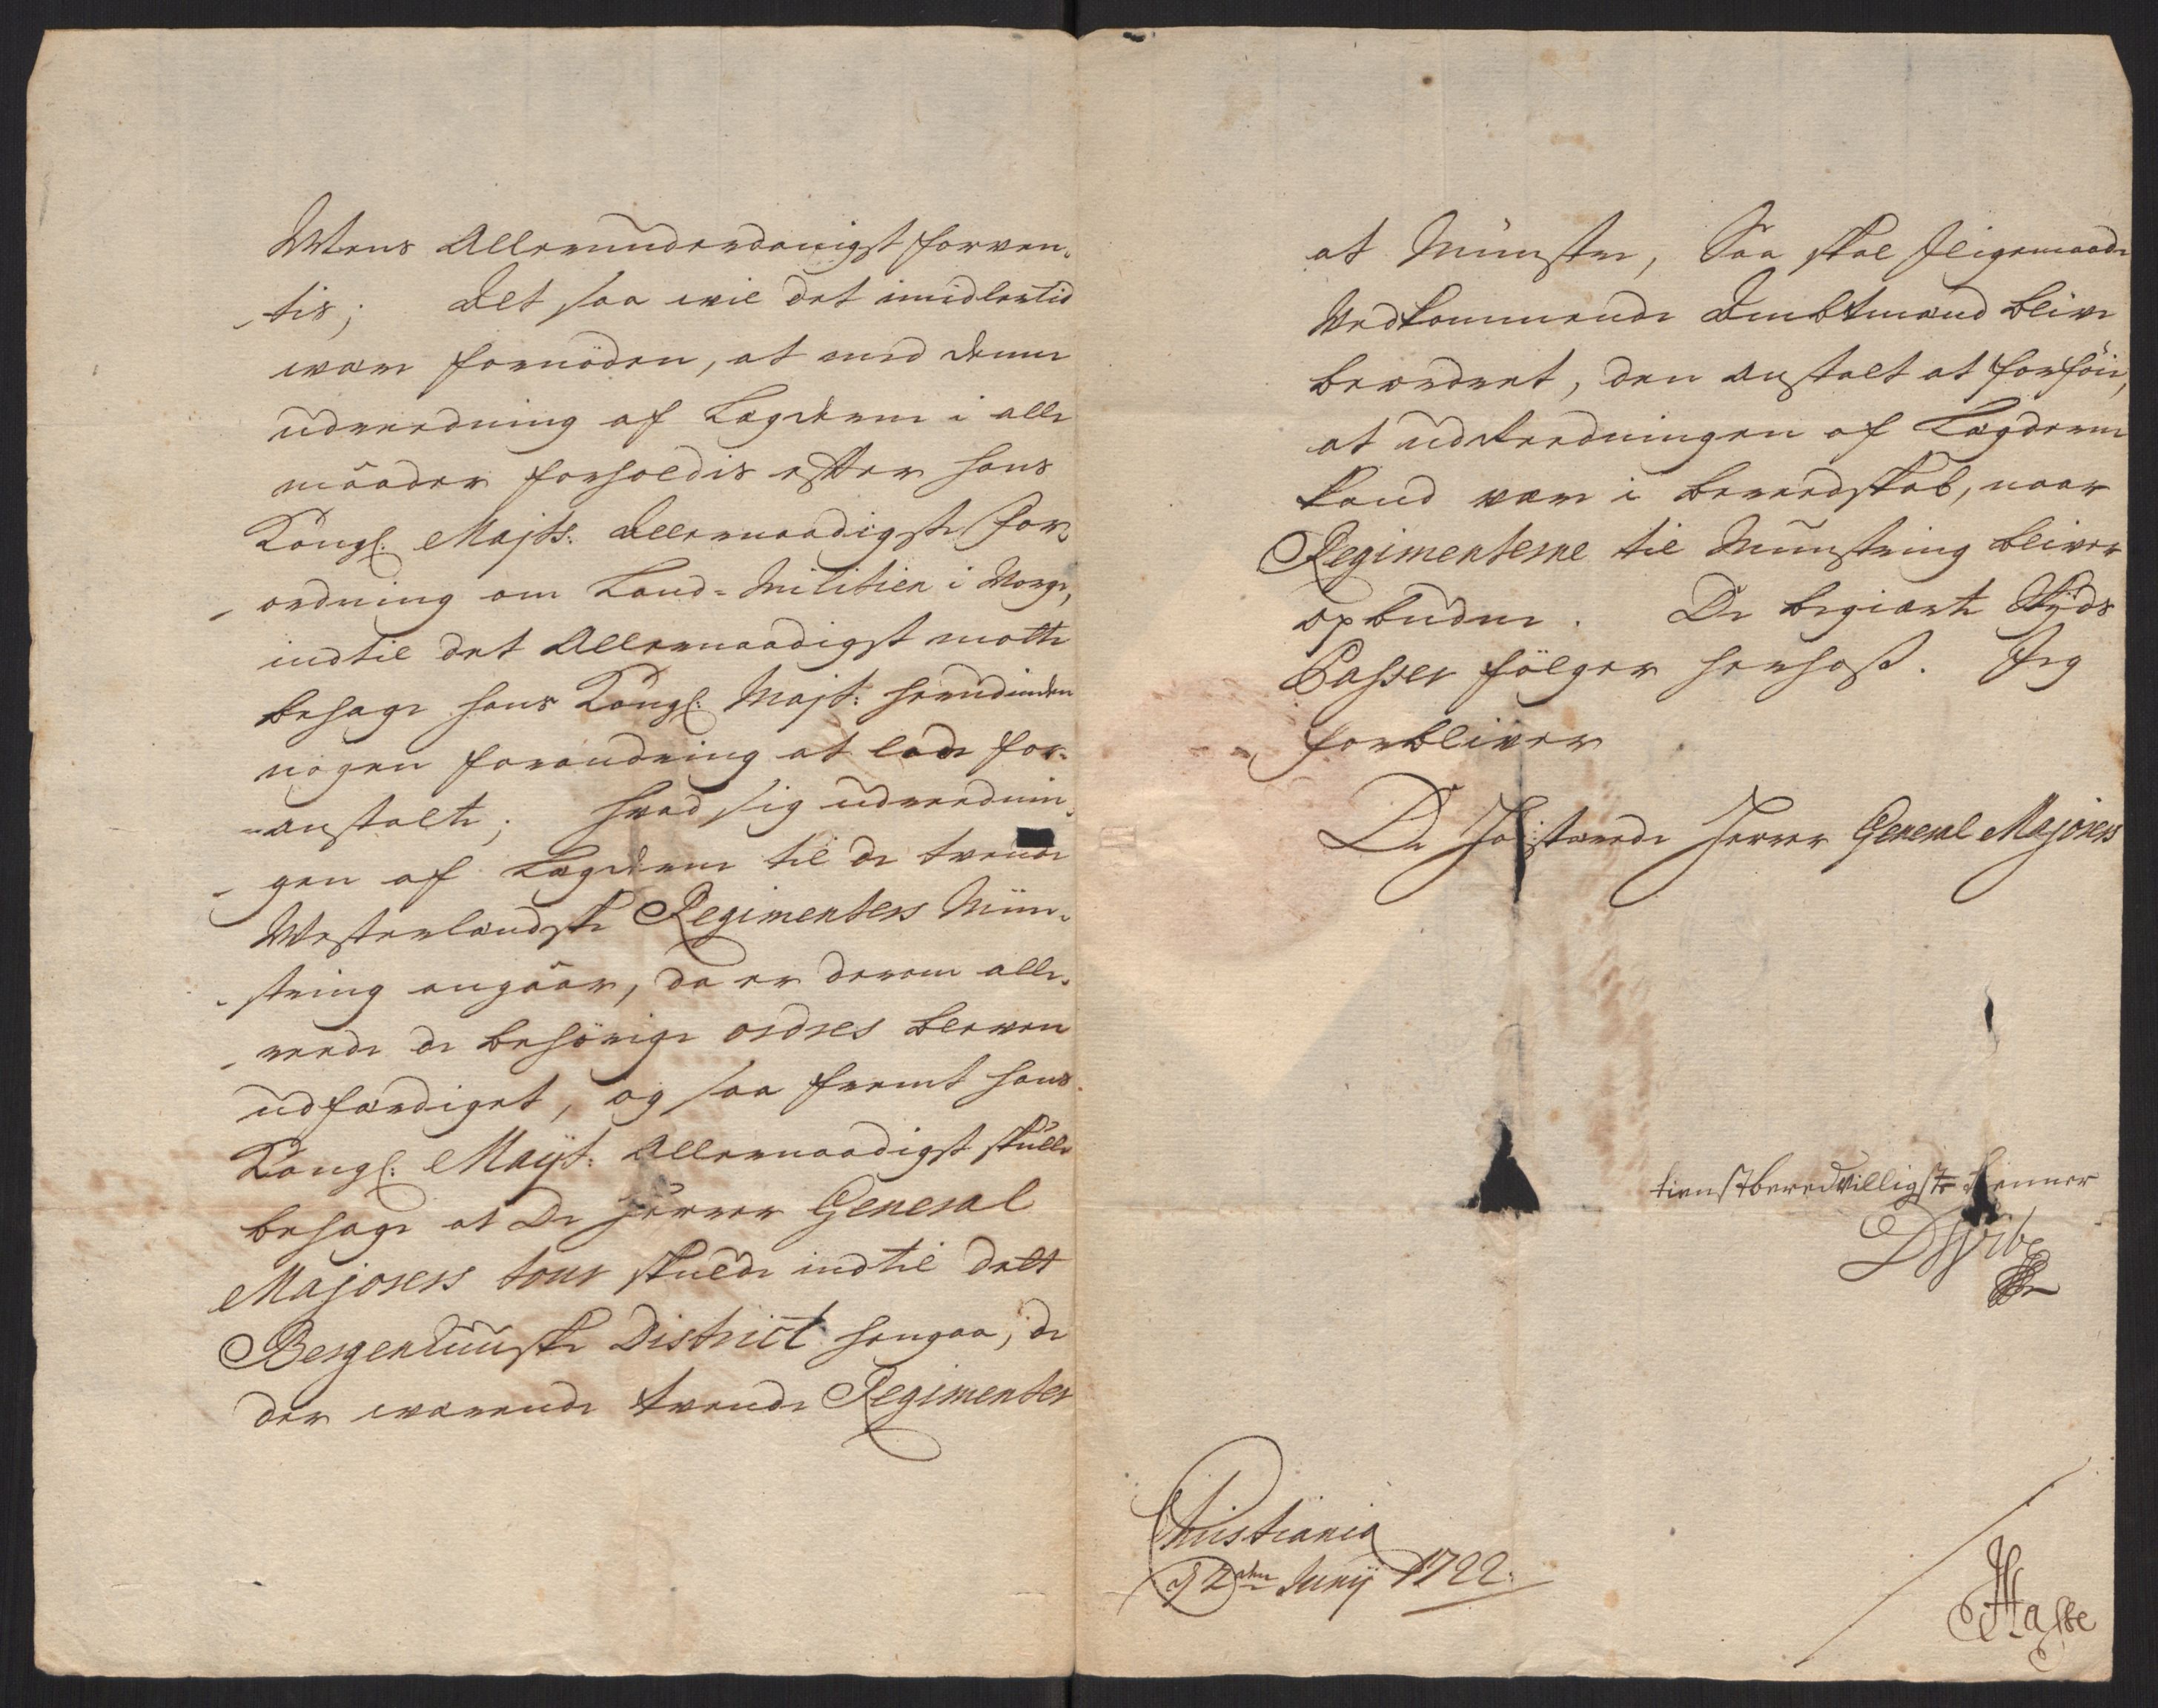 Wtens Allerunderdanigst forven¬
-tis; Alt saa wil det imidlertid
være fornöden, at med denne
udreedning af Lægderne i alle
maader forholdis efter hans
Kongl: Majts: Allernaadigste For¬
-ordning om Land-Militien i Norge,
indtil det Allernaadigst motte
behage hans Kongl: Majt: herudinden
nogen forandring at lade for¬
-anstalte; hvad sig udreednin¬
-gen af Lægderne til de trende
Westerlandske Regimenters Mün¬
-string angaar, da er derom alle¬
-reede de behörige ordres bleven
udfærdiget, og saa fremt hans
Kongl: Mayt: Allernaadigst skulle
behage at De Herrer General
Majorers tour skulde indtil dett
Bergenhuuske District hengaa, de
der værende trende Regimenter
at Münstre, Saa skal ligemaade
Vedkommende Ambtmænd blive
beordret, den anstalt at forföie,
at udreedningen af Lægderne
kand være i bereedskab, naar
Regimenterne til Münstring bliver
opbuden. De begiærte Skyds
Passer fölger herhoß. Jeg
forbliver
De Höistærede Herrer General Majorers
tienstberedvilligste tienner
DWibe
Christiania
d 2den Junij 1722.
Hasse